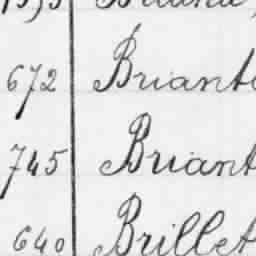 672 Briant
745 Briant
640 Brillet